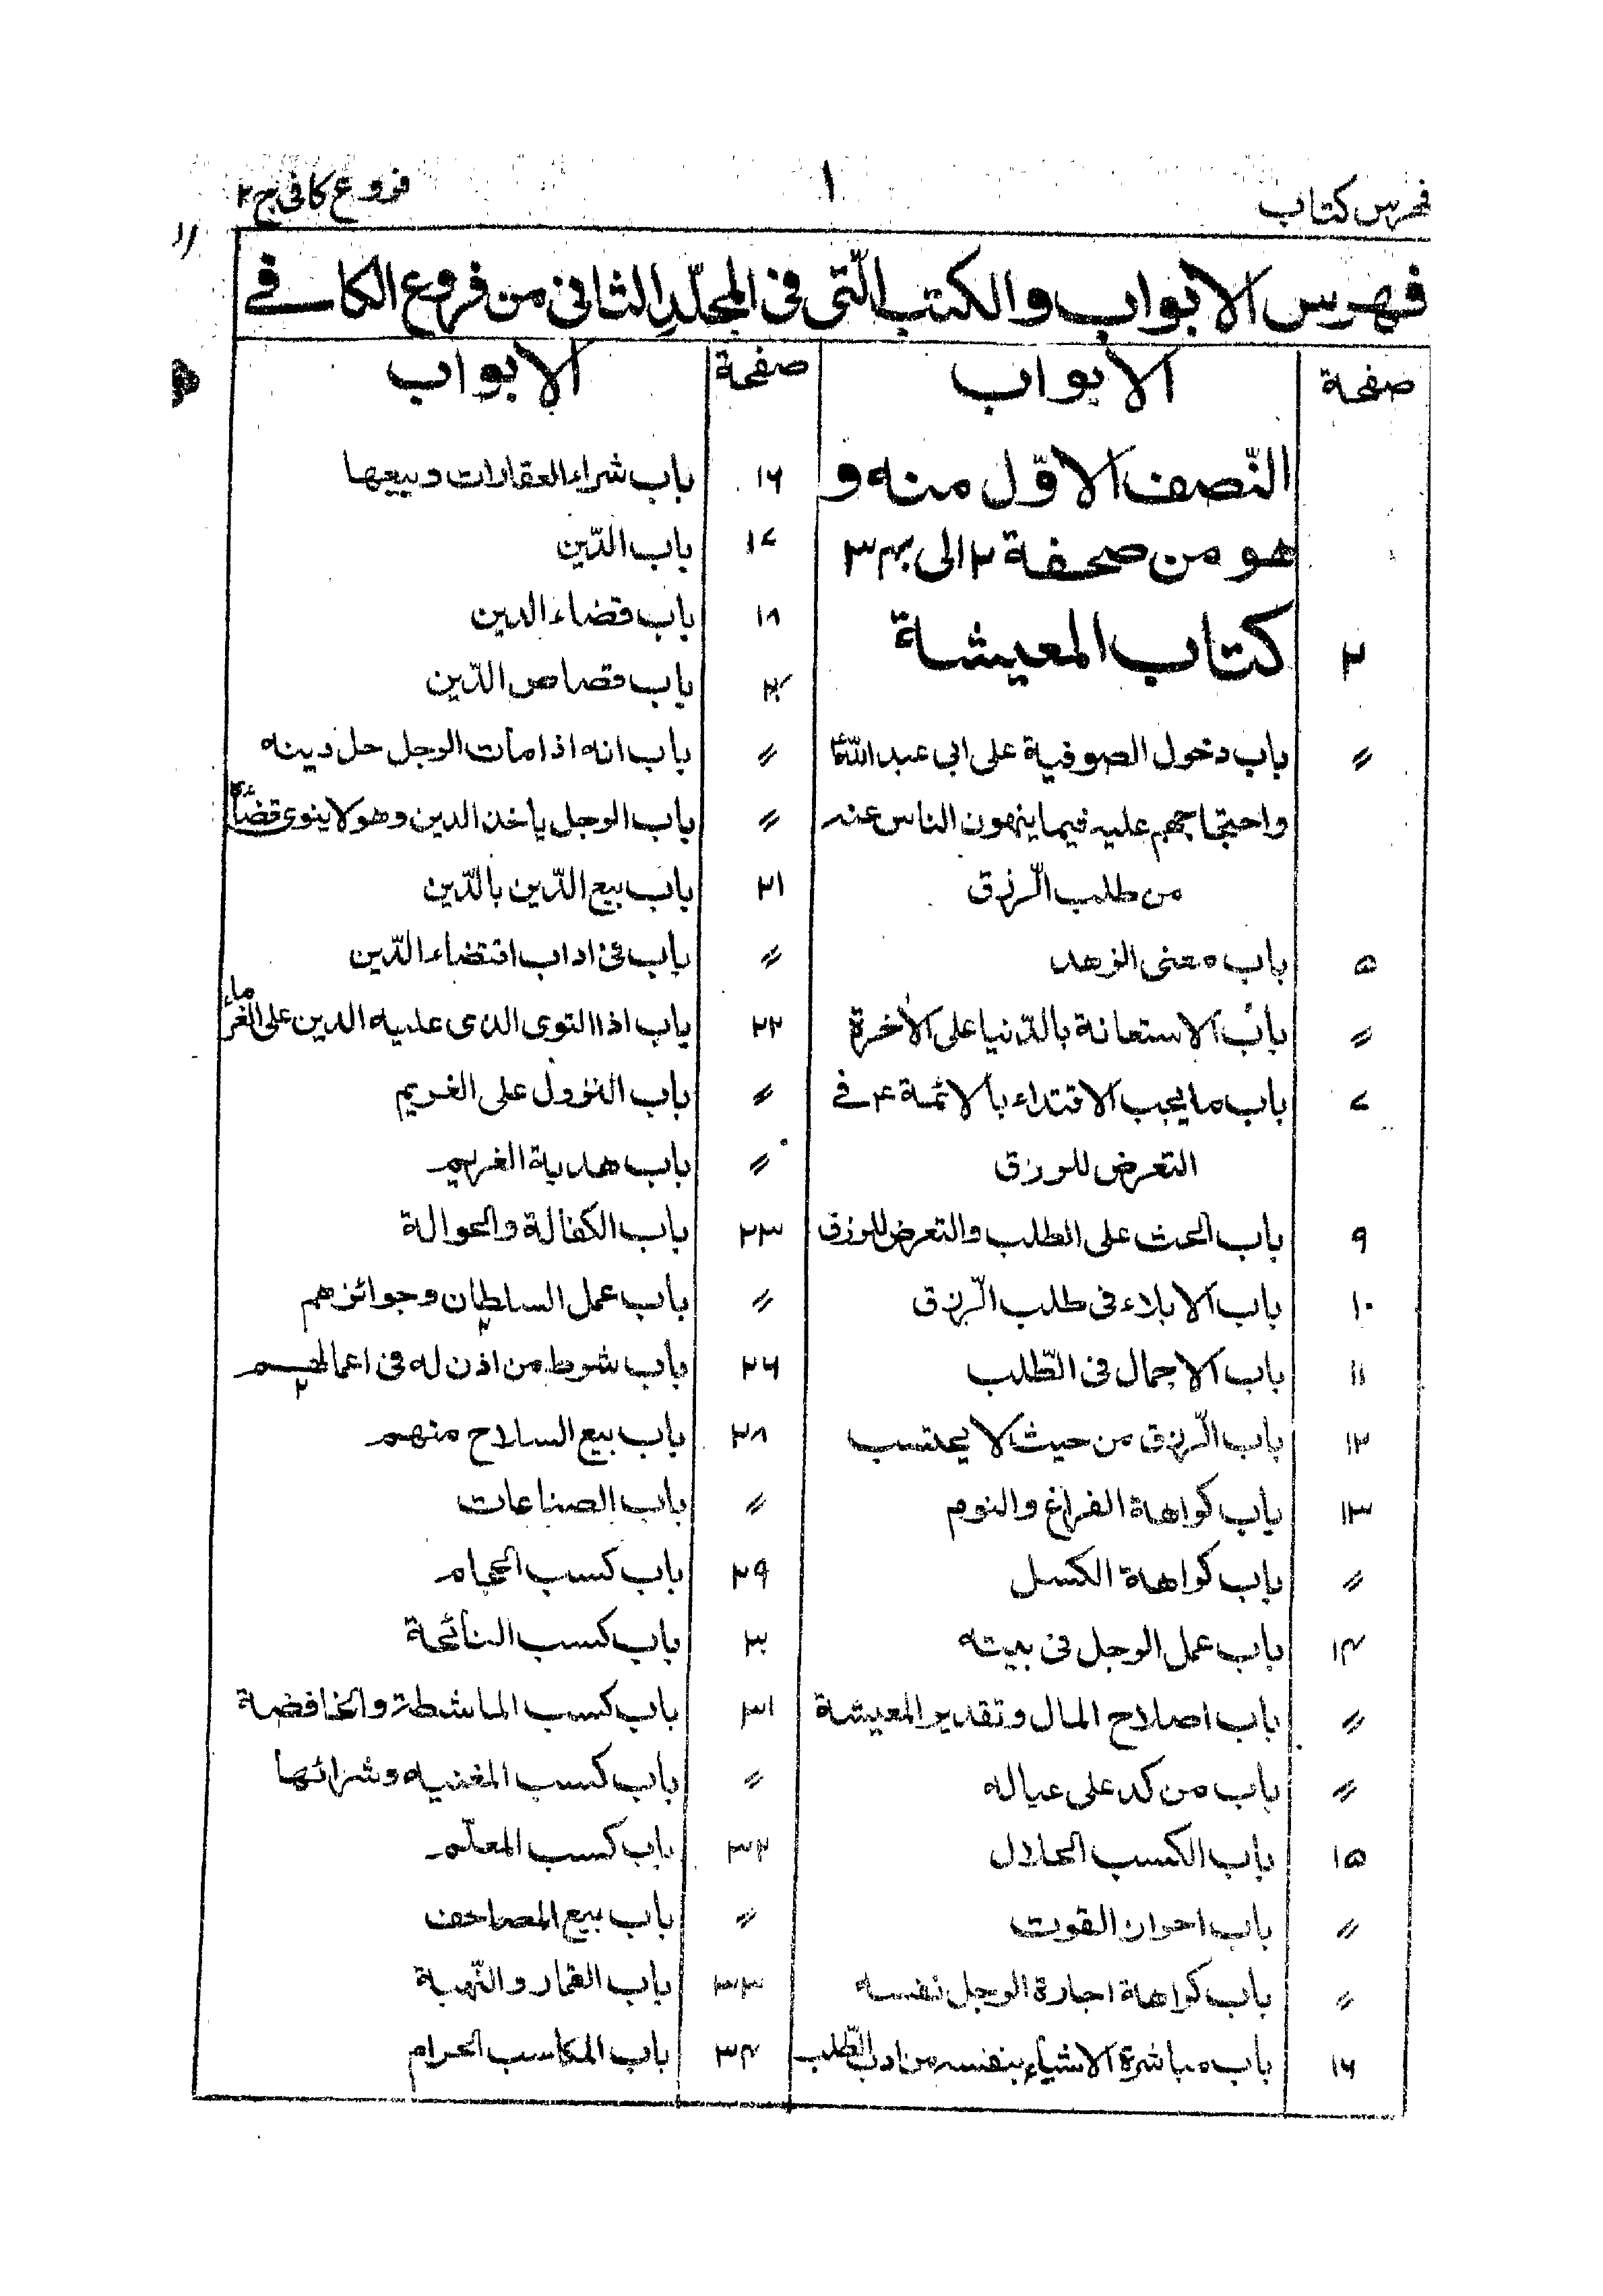 فهرس كتاب
١
فروع كافى ج٢
فهرس الابواب والكتب الّتى فى المجلّدِ الثانى من فروع الكافے
صفحة
الابواب
النّصف الاوّل منه و
هو من صحفة ٢ الى ٣
٢ كتاب المعيشة
〃 باب دخول الصوفية على ابى عبد اللهؑ
واحتجاجهم عليه فيما ينهون الناس عنه
من طلب الّرزق
٥ باب معنى الزهد
〃 باب الاستعانة بالدّنيا على الأخرة
٧ باب ما يجب الاقتداء بالائمة ع فے
التعرض للرزق
٩ باب الحث على الطلب والتعرض للرزق
١٠ باب الابلاء فى طلب الّرزق
١١ باب الاجمال فى الطّلب
١٢ باب الّرزق من حيث لا يحتسب
١٣ باب كراهة الفراغ والنوم
〃 باب كراهة الكسل
١٤ باب عمل الرجل فى بيته
〃 باب اصلاح المال وتقدير المعيشة
〃 باب من كد على عياله
١٥ باب الكسب الحلال
〃 باب احراز القوت
〃 باب كراهة اجارة الرجل نفسه
١٦ باب مباشرة الاشياء بنفسه من ادب الطّلب
صفحة
الابواب
١٦ باب شراء العقارات وبيعها
١٧ باب الدّين
١٨ باب قضاء الدين
٢٠ باب قصاص الدّين
〃 باب انه اذا مات الرجل حل دينه
〃 باب الرجل يأخذ الدين وهو لا ينوى قضائه
٢١ باب بيع الدّين بالدّين
〃 باب فى اداب اقتضاء الدّين
٢٢ باب اذا التوى الذى عليه الدين على الغرماء
〃 باب النزول على الغريم
〃 باب هدية الغريم
٢٣ باب الكفالة والحوالة
〃 باب عمل السلطان وجوائزهم
٢٦ باب شرط من اذن له فى اعمالهم
٢٨ باب بيع السلاح منهم
〃 باب الصناعات
٢٩ باب كسب الحجام
٣٠ باب كسب النائحة
٣١ باب كسب الماشطة والخافضة
〃 باب كسب المغنيه وشرائها
٣٢ باب كسب المعلّم
〃 باب بيع المصاحف
٣٣ باب القمار والنّهبة
٣٤ باب المكاسب الحرام